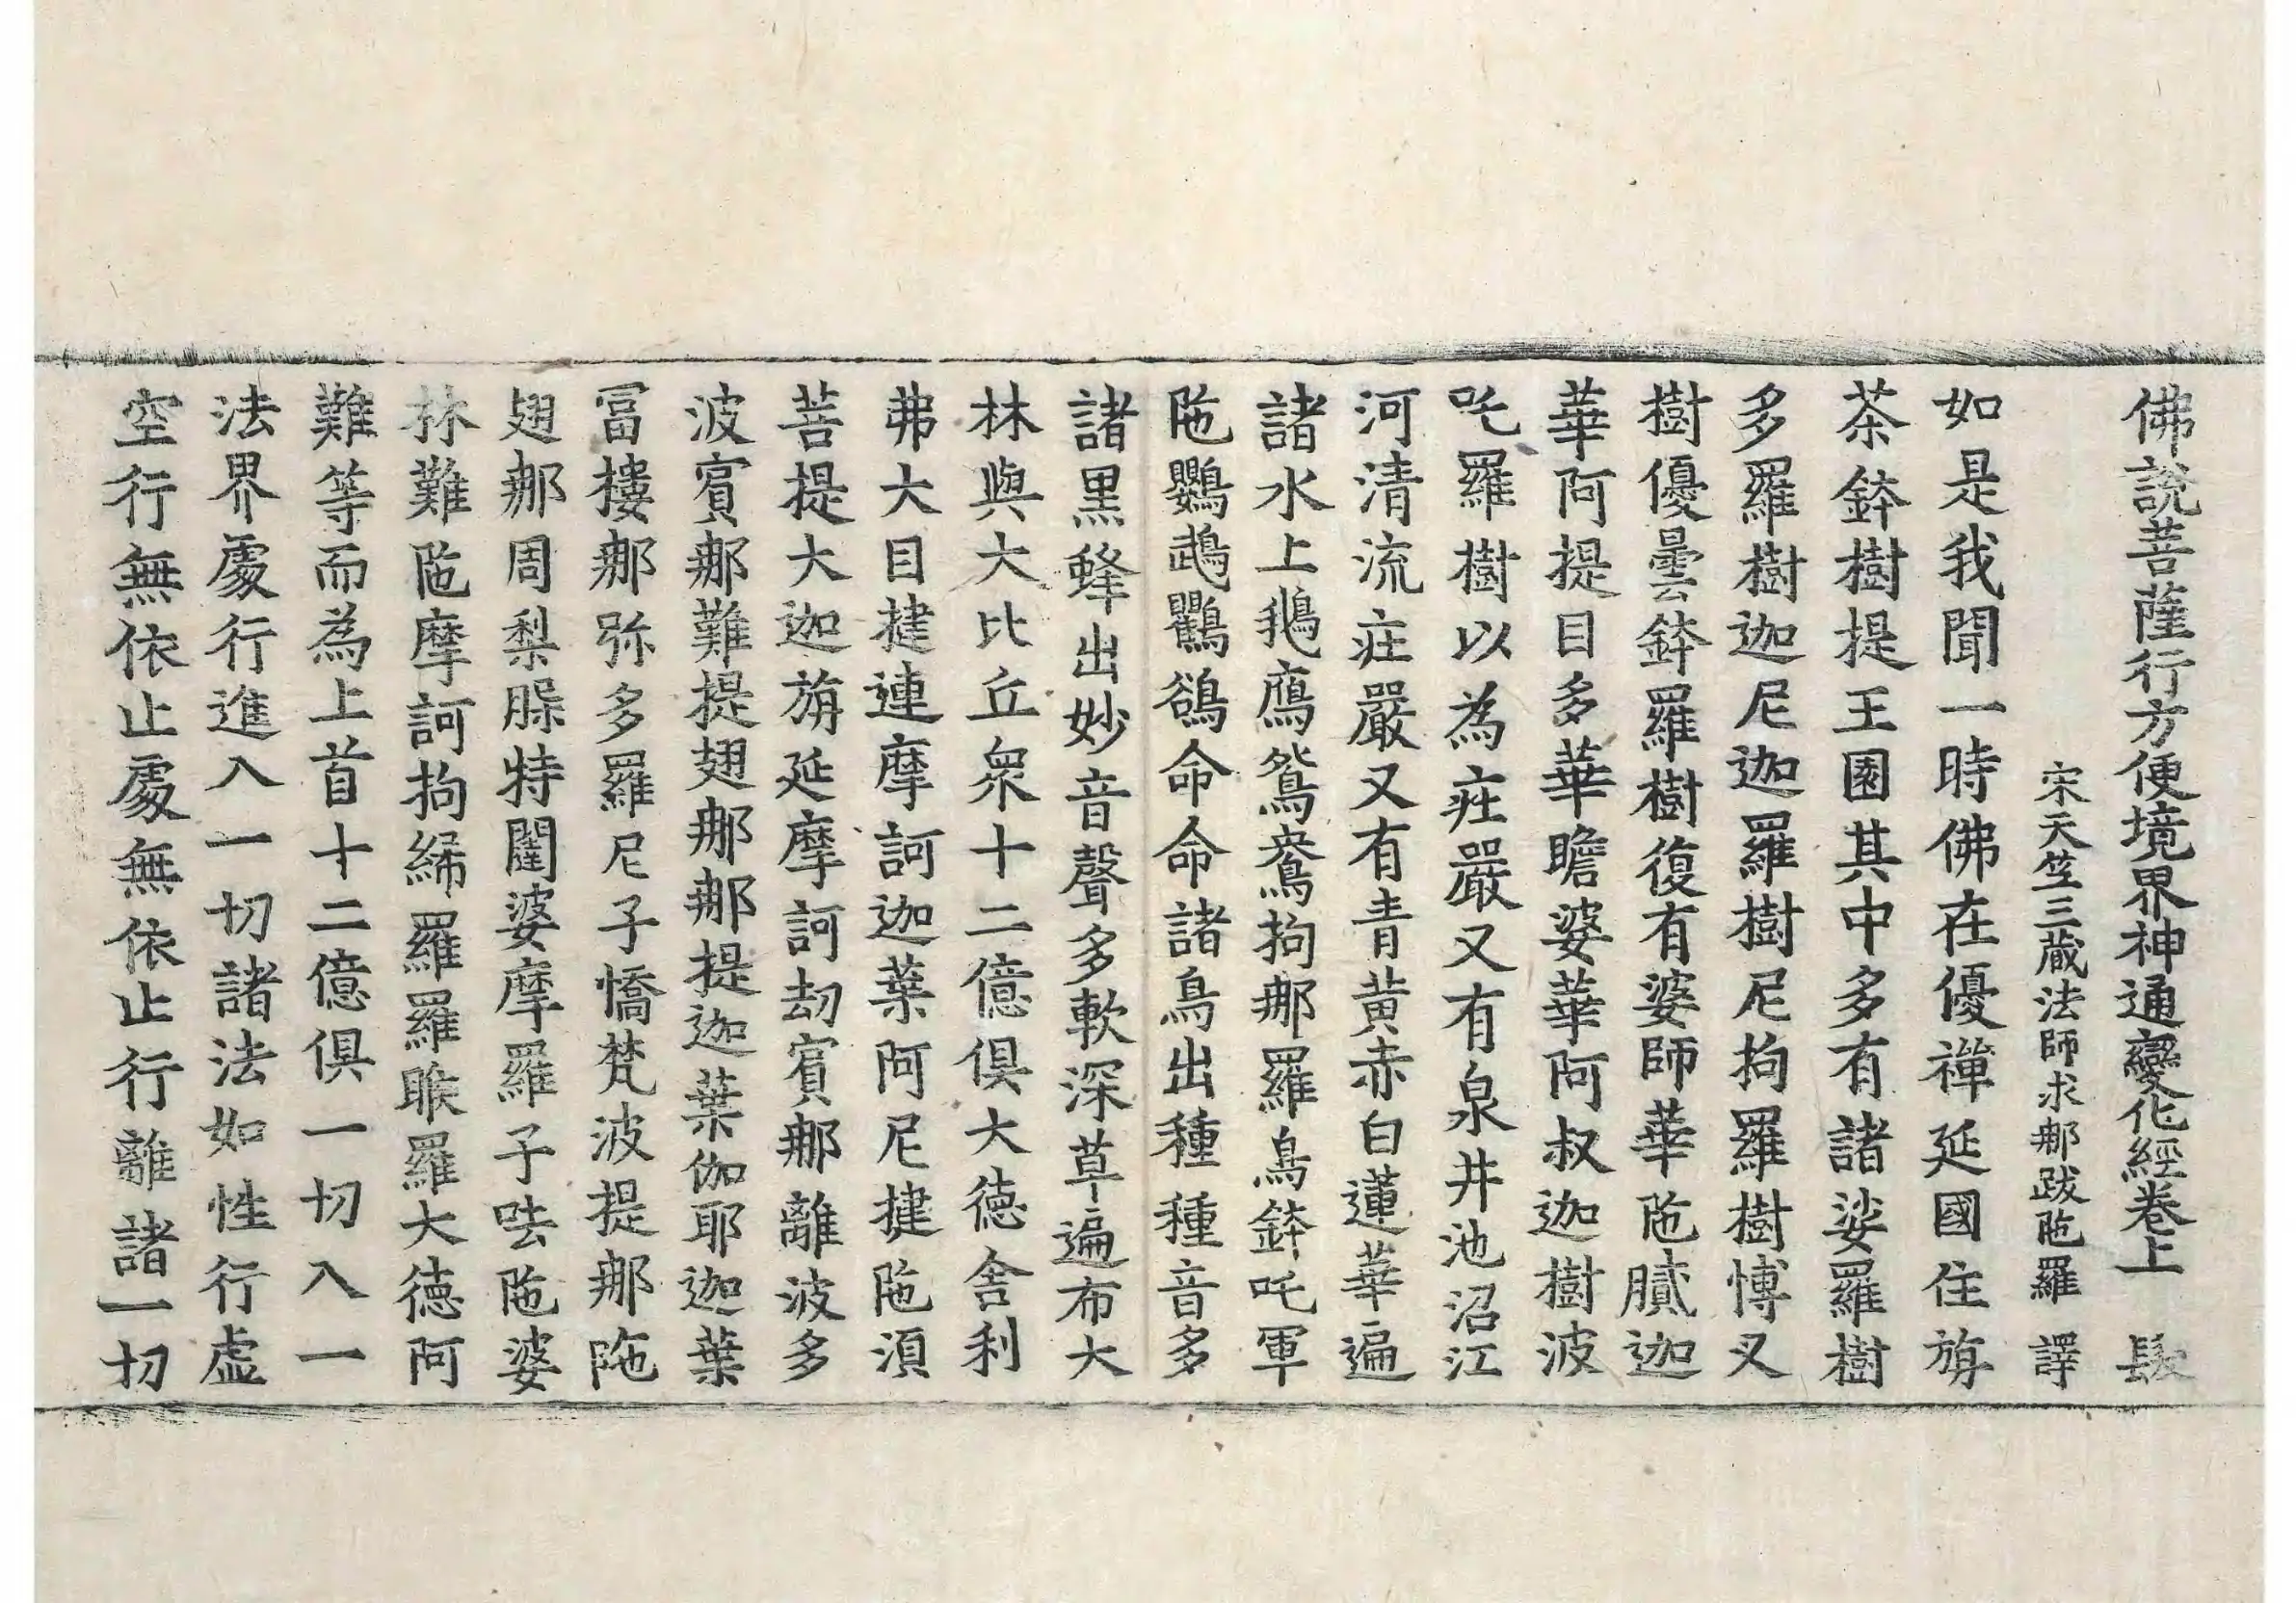 佛說菩薩行方便境界神通變化經卷上　髮
宋天竺三藏法師求那跋陁羅　譯
如是我聞一時佛在優禪延國住旃
茶鉢樹提王園其中多有諸娑羅樹
多羅樹迦尼迦羅樹尼拘羅樹博叉
樹優曇鉢羅樹復有婆師華陁膩迦
華阿提目多華瞻婆華阿叔迦樹波
吒羅樹以為莊嚴又有泉井池沼江
河清流莊嚴又有青黃赤白蓮華遍
諸水上鵝鴈鴛鴦拘那羅鳥鉢吒軍
陁鸚鵡鸜鵒命命諸鳥出種種音多
諸黑蜂出妙音聲多軟深草遍布大
林與大比丘眾十二億俱大德舍利
弗大目揵連摩訶迦葉阿尼揵陁湏
菩提大迦旃延摩訶劫賓那離波多
波賓那難提翅那那提迦葉伽耶迦葉
冨樓那弥多羅尼子憍梵波提那陁
翅那周梨腂特闥婆摩羅子呿陁婆
林難陁摩訶拘絺羅羅睺羅大德阿
難等而為上首十二億俱一切入一
法界處行進入一切諸法如性行虛
空行無依止處無依止行離諸一切